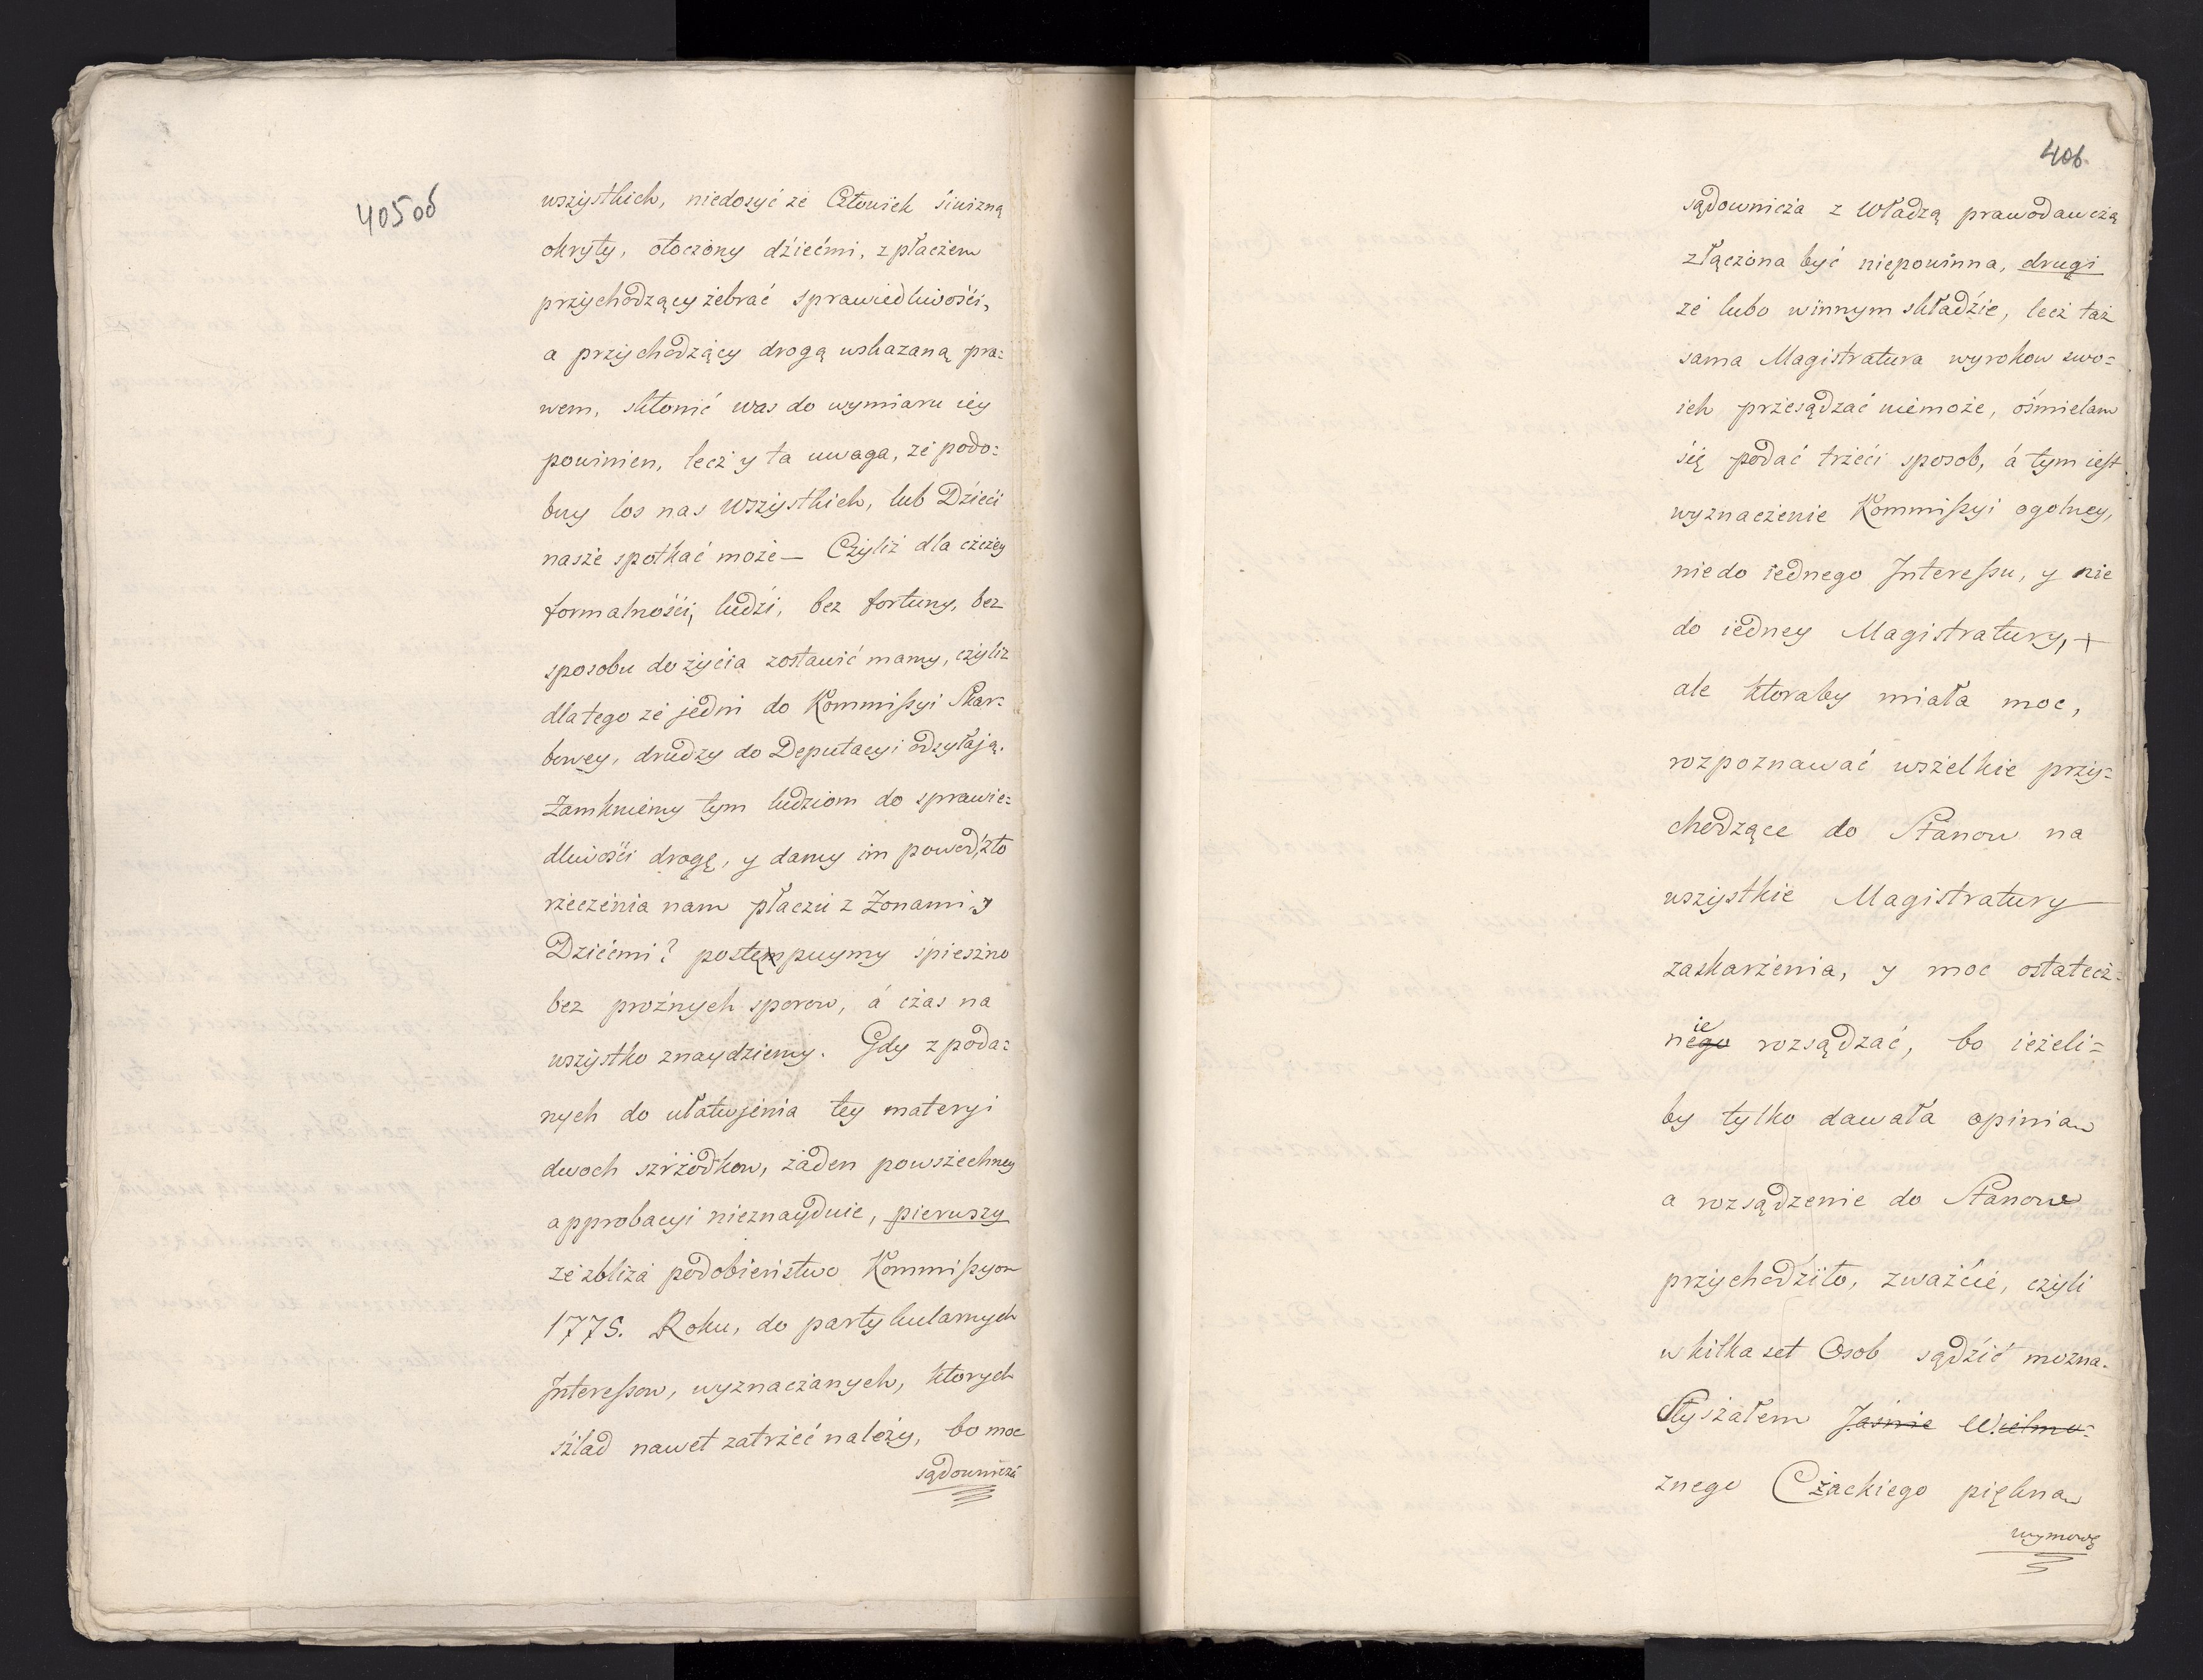 405об
wszystkich, niedosyć że Człowiek siwizną
okryty, otoczony dziećmi, z płaczem
przychodzący żebrać sprawiedliwości,
a przychodzący drogą wskazaną pra=
wem, skłonić was do wymiaru iey
powinien, lecz y ta uwaga, że podo=
bny los nas wszystkich, lub Dzieci
nasze spotkać może — Czyliż dla czczey
formalności, ludzi, bez fortuny, bez
sposobu do życia zostawić mamy, czyliż
dlatego że jedni do Kommissyi Skar=
bowey, drudzy do Deputacyi odsyłają.
Zamkniemy tym ludziom do sprawie=
dliwości drogę, y damy im powód, zło
rzeczenia nam płacząc z Żonami y
Dziećmi? postempuymy śpieszno
bez prożnych sporow, á czas na
wszystko znaydziemy. Gdy z poda=
nych do ułatwjenia tey materyi
dwoch szrżodkow, żaden powszechney
approbacyi nieznayduie, pierwszy
że zbliża podobieństwo Kommissyow
1775. Roku, do partykularnych
Interessow, wyznaczanych, ktorych
szlad nawet zatrzeć należy, bo moc
sądownicza
406.
sądownicza z władzą prawodawczą
złączona być niepowinna, drugi
że lubo w innym składzie, lecz taż
sama Magistratura wyrokow swo=
ich przesądzać niemoże, ośmielam
się podać trzeci sposob, á tym iest
wyznaczenie Kommissyi ogolney,
nie do iednego Interessu, y nie
do iedney Magistratury, +
ale ktoraby miała moc,
rozpoznawać wszelkie przy=
chodzące do Stanow na
wszystkie Magistratury
zaskarżenia, y moc ostatecz=
nie
nego rozsądzać, bo ieżeli=
by tylko dawała opinian
a rozsądzenie do Stanow
przychodziło, zważcie, czyli
w kilka set Osob sądzić można.
Słyszałem Jaśnie Wielmo=
żnego Czackiego piękna
wymowę